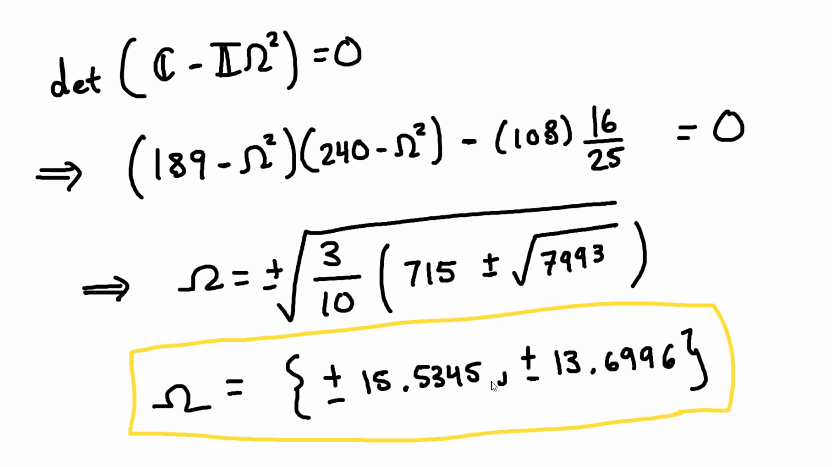 det (ℂ - 𝕀Ω²) = 0
⇒ (189 - Ω²)(240 - Ω²) - (108) 16/25 = 0
⇒ Ω = ±√(3/10 (715 ± √7993))
Ω = {± 15.5345, ± 13.6996}